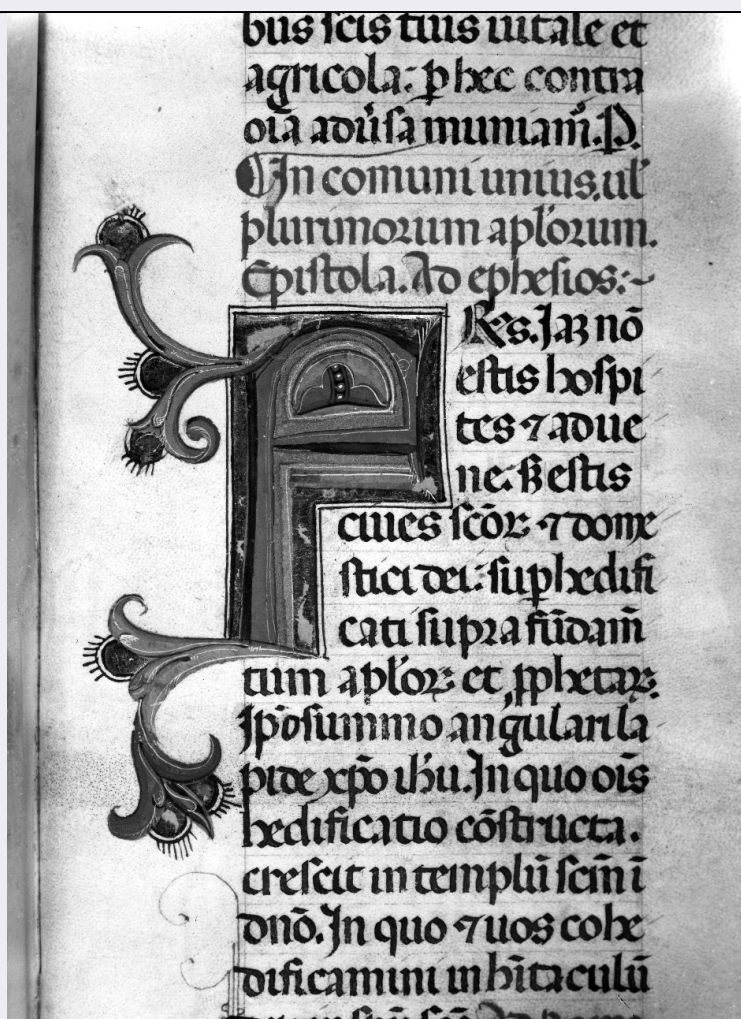 bus scis tuis uitale et
agricola: p hec contra
oīa aduʼsa muniam̄. P.
In comuni unius. ul
plurimorum aplʼorum.
Epistola. Ad ephesios:~
FRēs. Iaꝫ nō
estis hospi
tes ⁊ adue
ne: sʒ estis
ciues scōꝝ ⁊ dome
stici dei: suphedifi
cati supra fūdam̄
tum aplʼoꝝ et pphetaꝝ.
Ipōsummo angulari la
pide xp̄o ihʼu. In quo oīs
hedificatio cōstructa.
crescit in templū scm̄ ī
dnō. In quo ⁊ uos cohe
dificamini in hītaculū